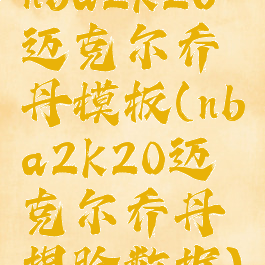 nba2k20
迈克尔乔
丹模板(nb
a2k20迈
克尔乔丹
捏脸数据)